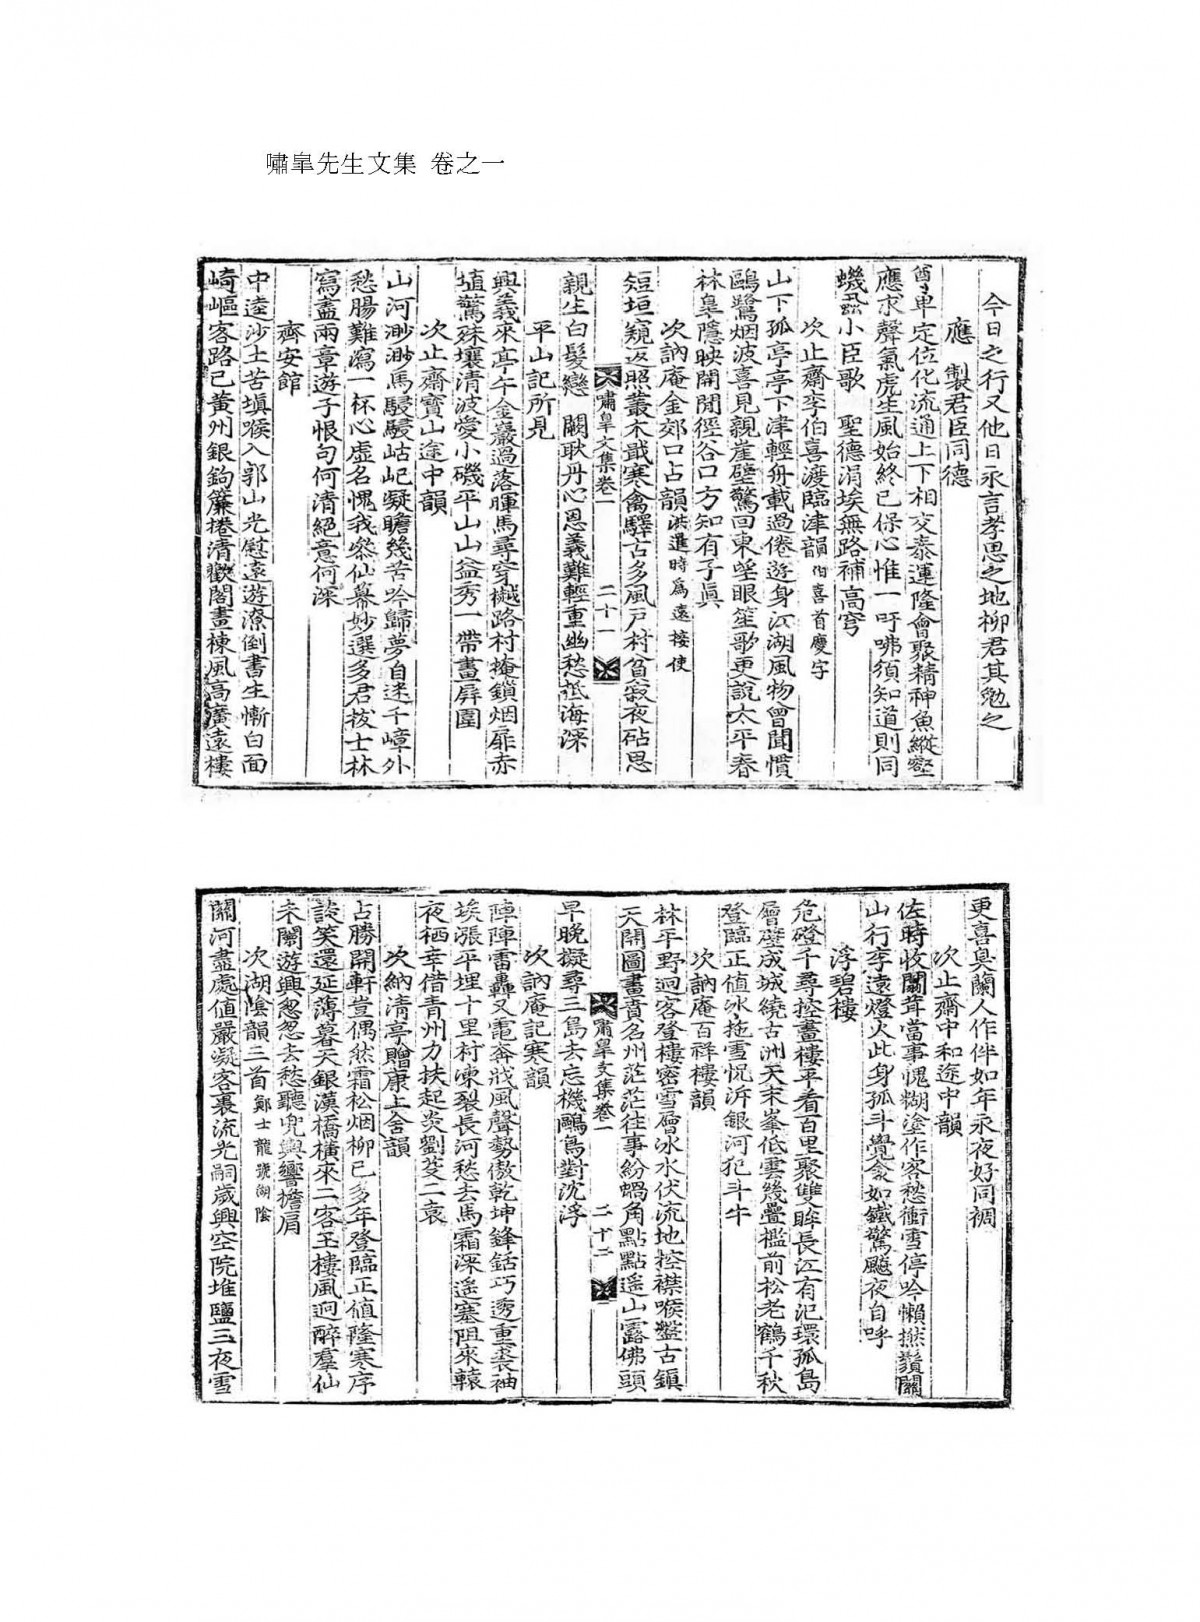 嘯皐先生文集 卷之一
今日之行又他日永言孝思之地柳君其勉之
應 製君臣同德
尊卑定位化流通上下相交泰運隆會聚精神魚縱壑
應求聲氣虎生風始終已保心惟一吁咈須知道則同
蟣蝨小臣歌 聖德涓埃無路補高穹
次止齋李伯喜渡臨津韻伯喜首慶字
山下孤亭亭下津輕舟載過倦遊身江湖風物曾聞慣
鷗鷺烟波喜見親崖壁驚回東望眼笙歌更說太平春
林皐隱映開閒徑谷口方知有子眞
次訥庵金郊口占韻洪暹時爲遠接使
短垣窺返照叢木戢寒禽驛古多風戶村貧寂夜砧思
嘯皐文集卷一 二十一
親生白髮戀 闕耿丹心恩義難輕重幽愁抵海深
平山記所見
興義來亭午金巖過落暉馬尋穿樾路村掩鎖烟扉赤
埴驚殊壤清波愛小磯平山山益秀一帶畫屛圍
次止齋寶山途中韻
山河渺渺馬駸駸岵屺凝瞻幾苦吟歸夢自迷千嶂外
愁腸難瀉一杯心虛名愧我叅仙幕妙選多君拔士林
寫盡兩章遊子恨句何清絕意何深
齊安館
中逵沙土苦塡喉入郭山光慰遠遊潦倒書生慚白面
崎嶇客路已黃州銀鉤簾捲清歡閣畫棟風高廣遠樓
更喜臭蘭人作伴如年永夜好同裯
次止齋中和途中韻
佐時收闒茸當事愧糊塗作客愁衝雪停吟懶撚鬚關
山行李遠燈火此身孤斗覺衾如鐵驚飈夜自呼
浮碧樓
危磴千尋控畫樓平看百里聚雙眸長江有氾環孤島
層壁成城繞古洲天末峯低雲幾疊檻前松老鶴千秋
登臨正値冰拖雪怳泝銀河犯斗牛
次訥庵百祥樓韻
林平野迥客登樓密雪層冰水伏流地控襟喉盤古鎭
天開圖畫賁名州茫茫往事紛蝸角點點遙山露佛頭
嘯皐文集卷一 二十二
早晩擬尋三島去忘機鷗鳥對沈浮
次訥庵記寒韻
陣陣雷轟又電奔戕風聲勢傲乾坤鋒銛巧透重裘袖
埃漲平埋十里村凍裂長河愁去馬霜深遙塞阻來轅
夜栖幸借青州力扶起炎劉芟二袁
次納清亭贈康上舍韻
占勝開軒豈偶然霜松烟柳已多年登臨正値隆寒序
談笑還延薄暮天銀漢橋橫來二客玉樓風迥醉羣仙
未闌遊興怱怱去愁聽兜輿響擔肩
次湖陰韻三首鄭士龍號湖陰
關河盡處値嚴凝客裏流光嗣歲興空院堆鹽三夜雪